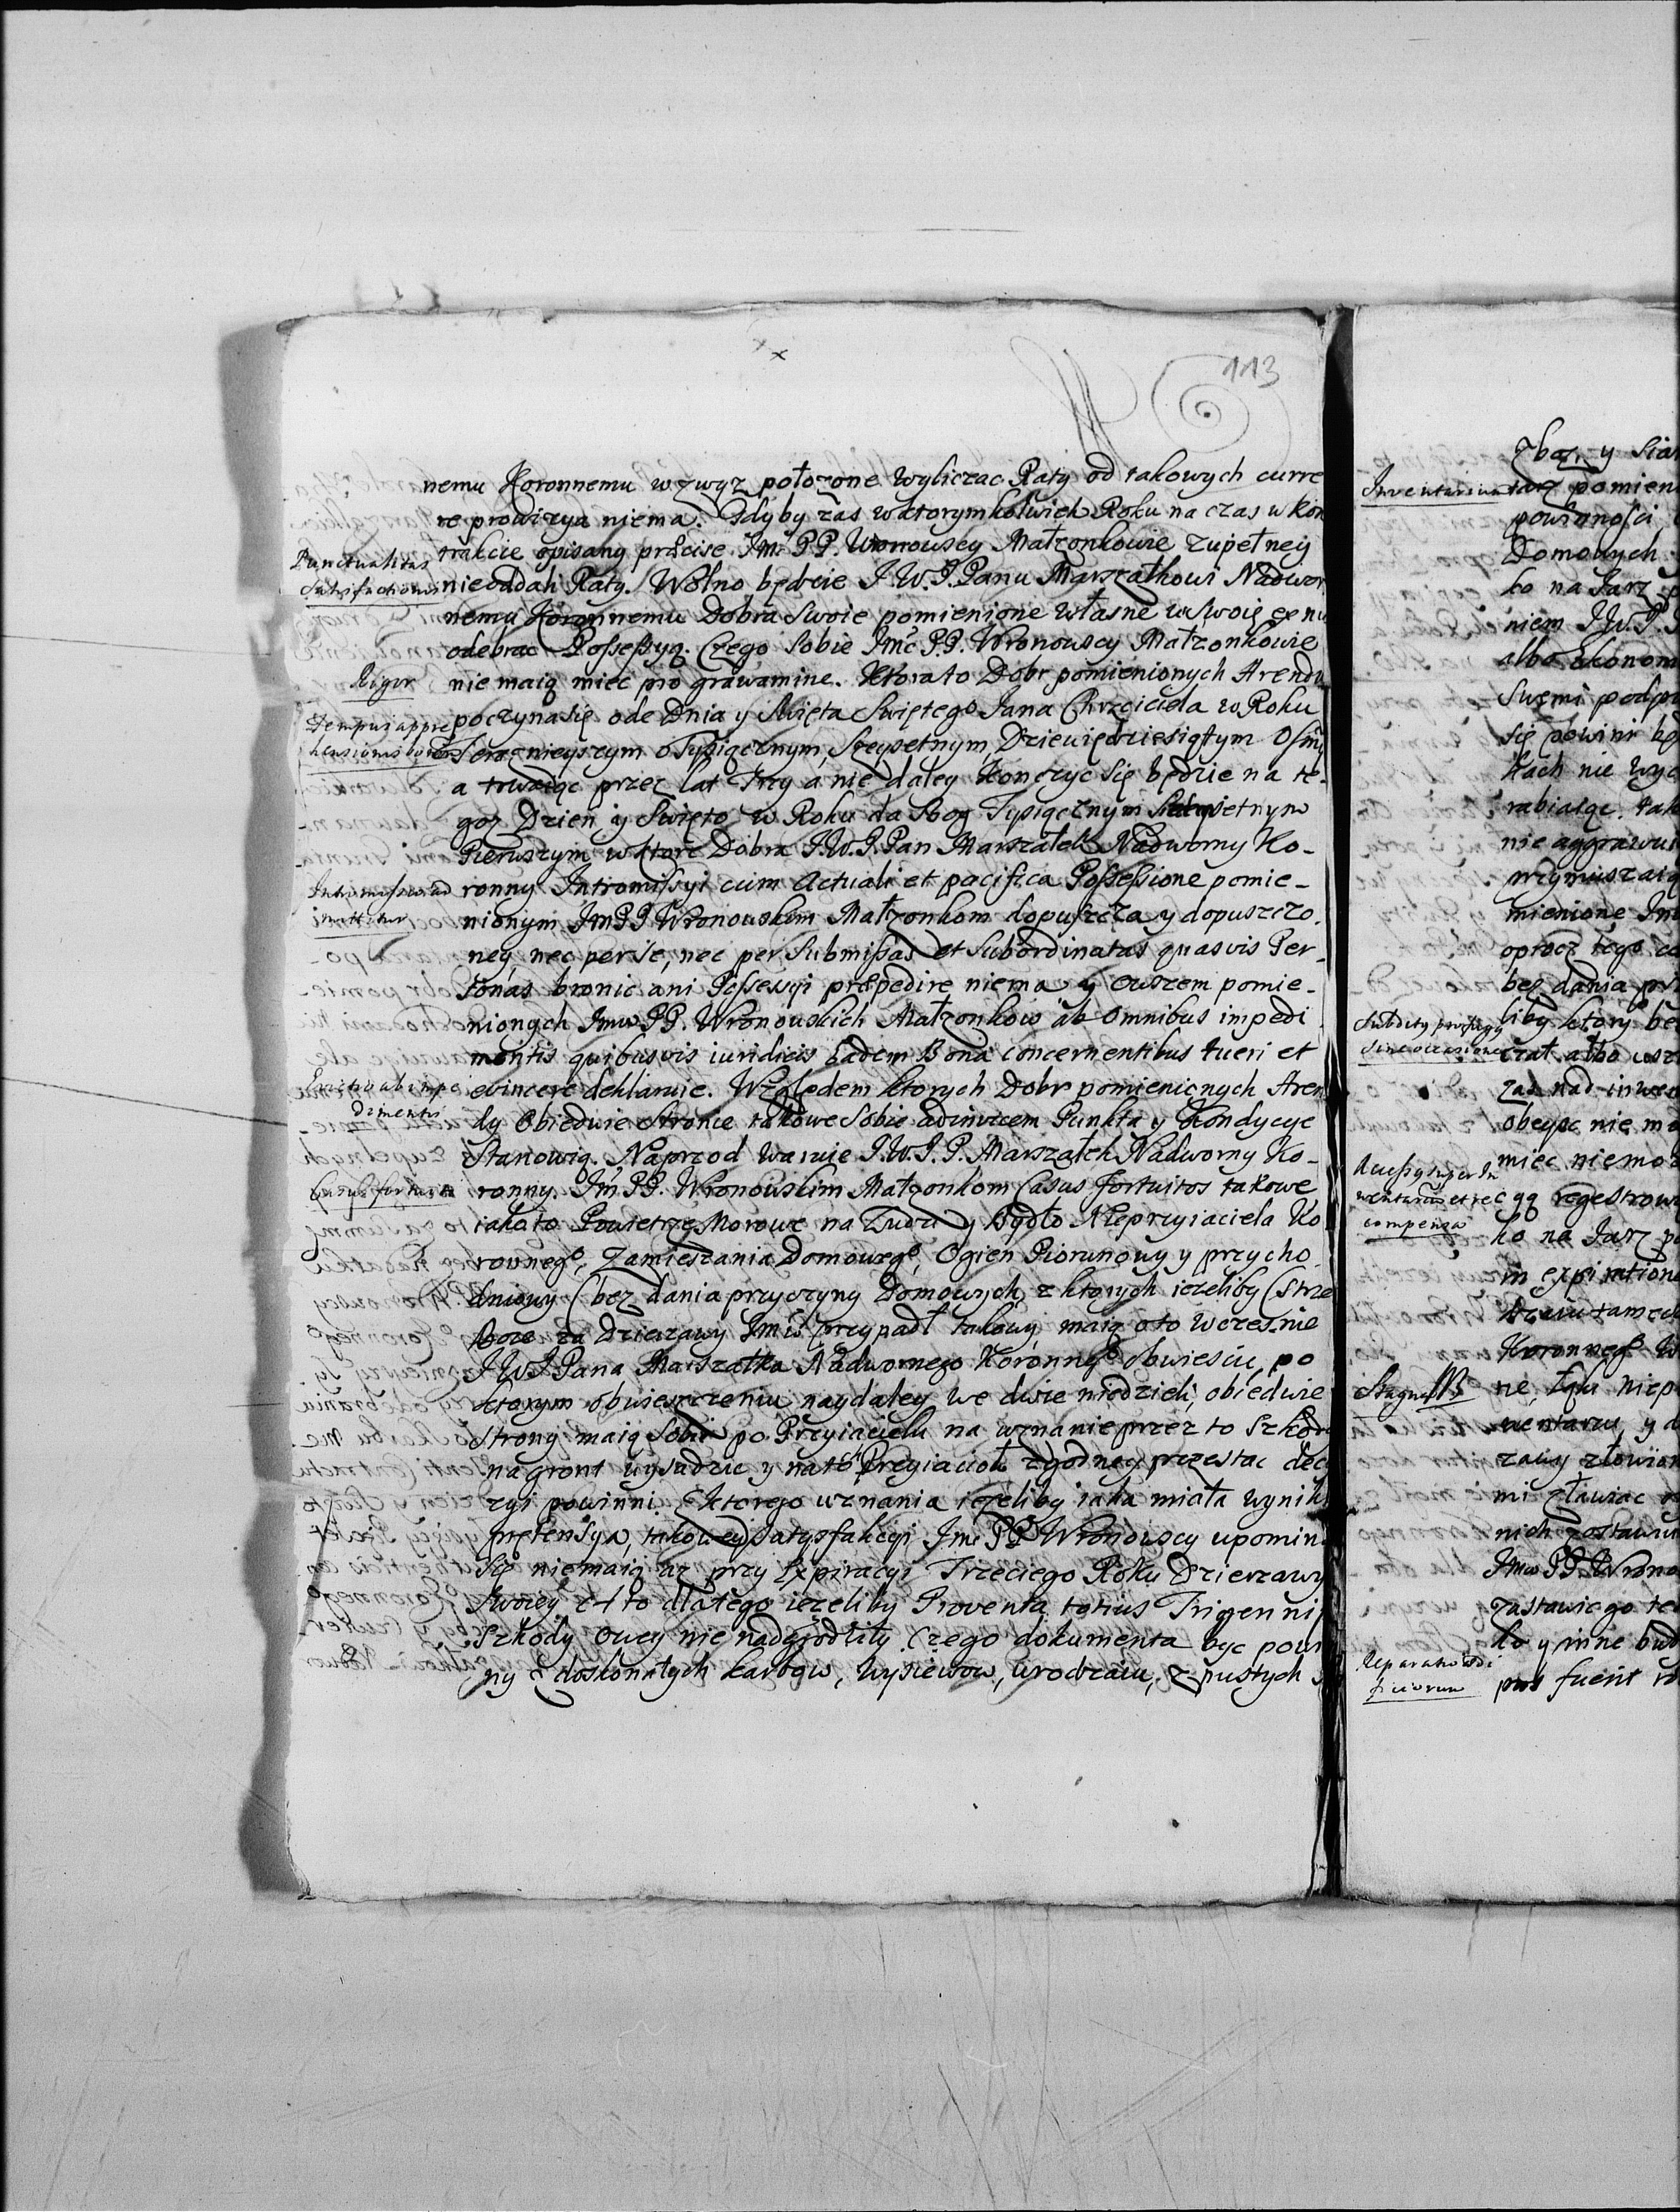 113
nemu Koronnemu wzwyz położone wyliczac Raty od takowych curre
re prowizya niema. Gdyby zas wktorymkolwiek Roku na czas w Kon
trakcie opisany præcise Jm. PP. Wronowscy Małzonkowie zupełney
Punctualitas
Satisfactionis
nieoddali Raty. Wolno będzie J.W.J. Panu Marszałkowi Nadwor
nemu Koronnemu Dobra swoie pomienione własne w swoię ex nu
odebrac Possessyą. Czego sobie Jmc PP. Wronowscy Małzonkowie
Rigor
nie maią miec pro gravamine. Ktora to Dobr pomienionych Arenda
Tempus appre
hensionis bonor
poczyna się ode Dnia y Swięta Swiętego Jana Chrzciciela w Roku
teraznieyszym Tysiącznym, Szeysetnym, Dziewiędziesiątym Osmy
a trwaiąc przez lat Trzy a nie daley konczyc się będzie na te-
goz Dzien y Swięto w Roku da Bog Tysiącznym Siedmsetnym
Pierwszym, wktore Dobra J.W.J. Pan Marszałek Nadworny Ko-
Intromissio ad
mittitur
ronny Intromissyi cum Actuali et pacifica Possessione pomie-
nionym Jm PP Wronowskim Małzonkom dopuszcza y dopuszczo
ney, nec per se, nec per submissas et subordinatas quasvis Per-
sonas bronic ani Possessyi præpedire niema y owszem pomie-
nionych Jmw PP. Wronowskich Małzonkow ab omnibus impedi
mentis quibusvis iuridicis Eadem Bona concernentibus tueri et
Evictio ab impe
dimentis
evincere deklaruie. Względem ktorych Dobr pomienionych Aren
dy Obiedwie stronie takowe sobie adinvicem Punkta y Kondycye
Stanowią. Naprzod waruie J.W.J.P. Marszałek Nadworny Ko-
Casus fortuiti
ronny. Jm PP. Wronowskim Małzonkom Casus fortuitos takowe
iako to Powietrze Morowe na Ludzi y Bydło Nieprzyiaciela Ko
ronnego, Zamieszania Domowego, Ogien Piorunowy y przycho
dniowy (bez dania przyczyny Domowych) z ktorych iezeliby (strze
Boze za Dzierzawy Jmciow przypadł takowy maią oto wczesnie
J W J Pana Marszałka Nadwornego Koronnego obwiescic, po
ktorym obwieszczeniu naydaley we dwie niedzieli, obiedwie
strony maią sobie po Przyiacielu na uznanie przez to szkody
na gront wysadzic, y nato Przyiacioł zgodney przestac decy
zyi powinni. Z ktorego uznania iezeliby iaka miała wynik
prętensya, takowey satysfakcyi Jmc PP Wronowscy upomin
się niemaią az przy Expiracyi Trzeciego Roku Dzierzawy
swoiey et to dlatego iezeliby Proventa totius Triennii
szkody owey nie nadgrodziły. Czego dokumenta byc powin
ny z doskonałych karbow, wysiewow, urodzaiu, z pustych
zboz, y sian
Inventarium
tarz pomien
powinnosci,
Domowych
ko na Jarz
niem J.W.J.
albo Ekonom
swemi podp
się powint bę
kach nie wyc
rabiaiąc. tak
nie aggrawu
przymuszaią
mienione Jm
oprocz tego
bez dania prz
Subditi profugi
sine occasione
liby ktory be
czał albo usz
zas nad inwen
obeysc nie m
miec niemoz
Accessus super In
ventarium et rec
compensa
cyą regestrow
ko na Jarz po
in expiratione
Koronnego W
Stagna NB
ne, tylu niep
wentarzu, y d
zawy złowion
mi zławiac
nich zostawu
Jmw PP Wrono
zastawic go te
ko y inne bud
Reparatio ædi
ficiorum
pus fuerit